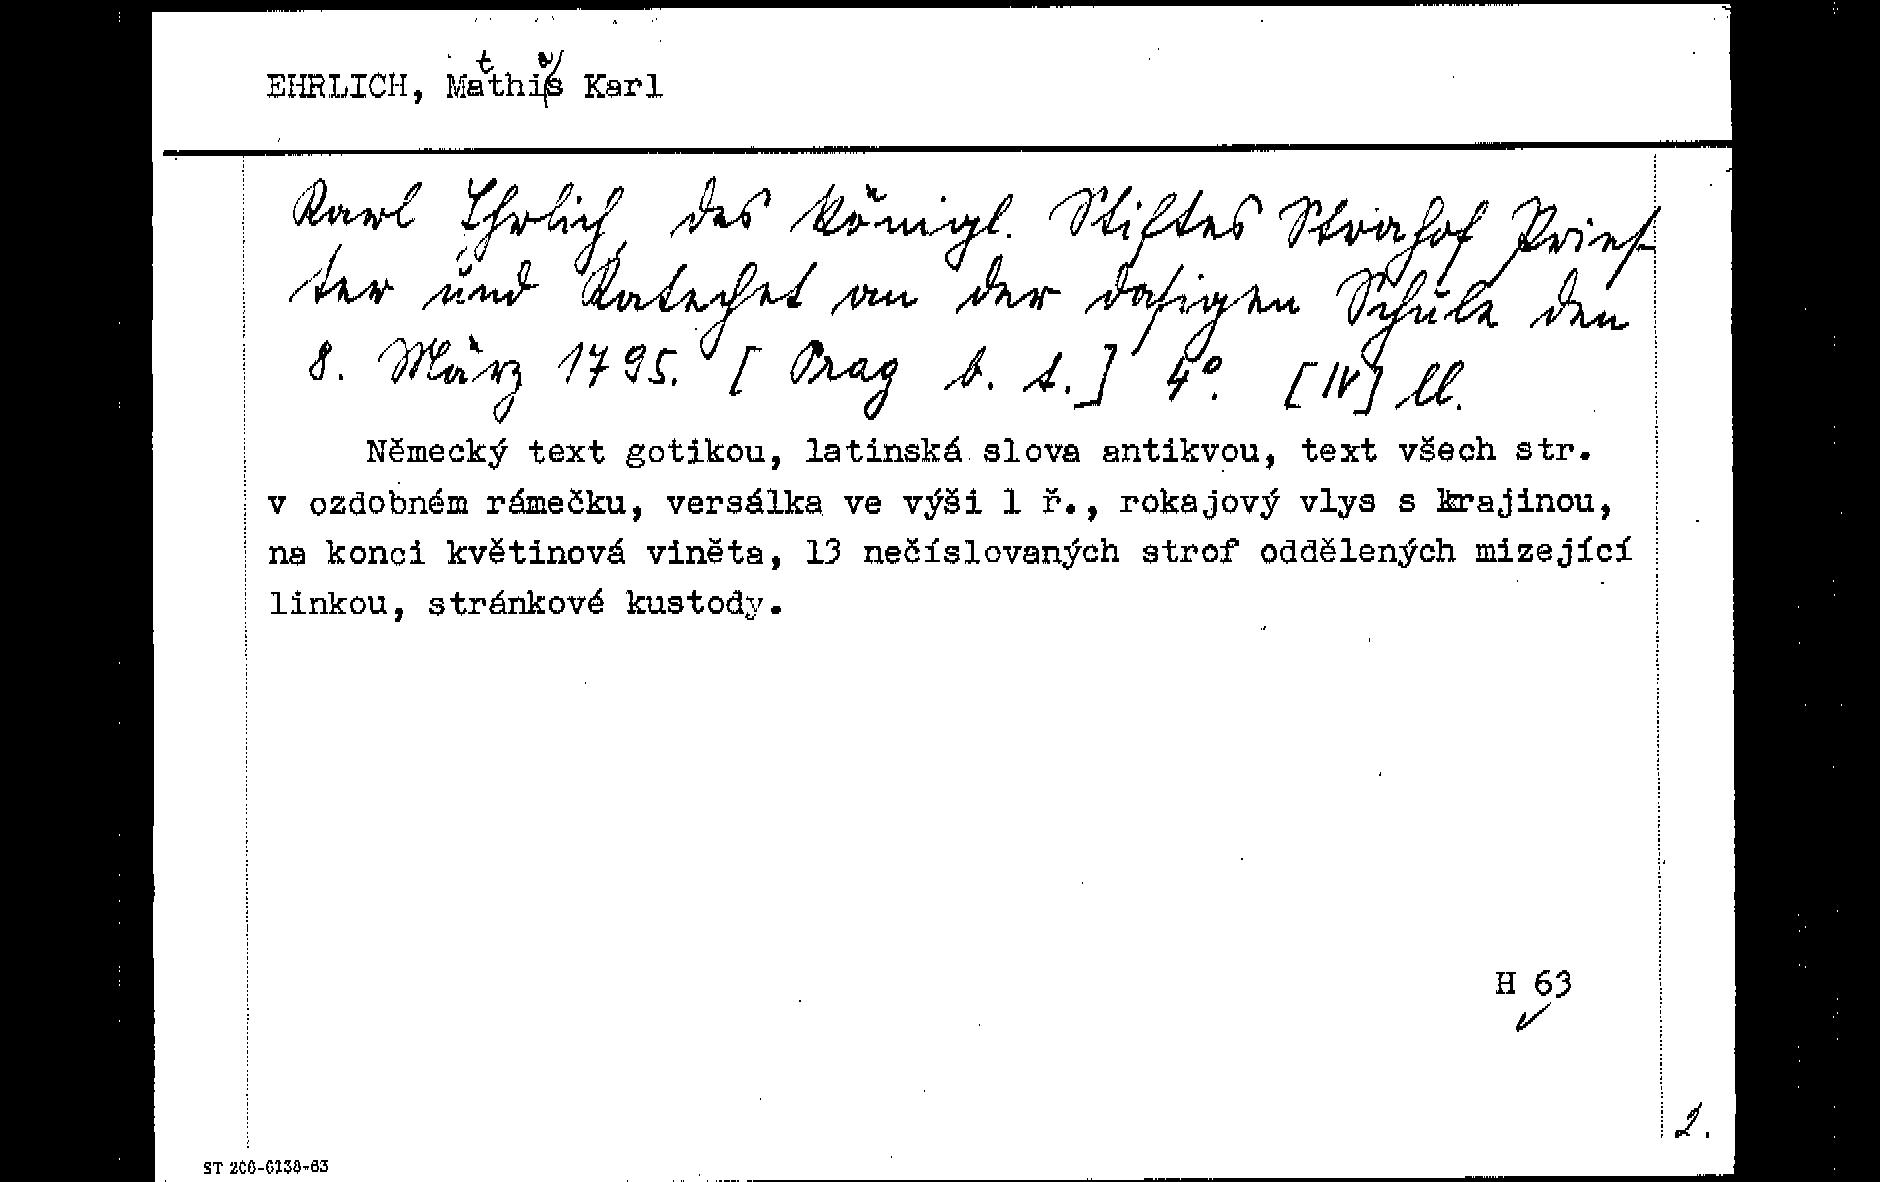 EHRLICH, Matthias Karl
Karl Ehrlich des königl. Stiftes Strahof Pries-
ter und Katechet an der dasigen Schule den
8. März 1795. [Prag b. t.] 4°. [IV] ll.
Německý text gotikou, latinská slova antikvou, text všech str.
v ozdobném rámečku, versálka ve výši 1 ř., rokajový vlys s krajinou,
na konci květinová viněta, 13 nečíslovaných strof oddělených mizející
linkou, stránkové kustody.
H 63
2.
ST 206-6138-63